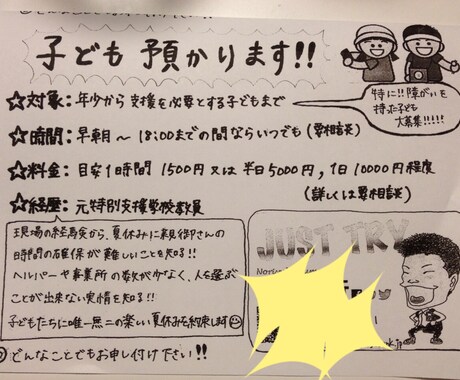 子ども 預かります!!
☆対象: 年少から支援を必要とする子どもまで
特に!!障がいを
持った子ども
大募集!!!!!
☆時間: 早朝〜18:00までの間ならいつでも(要相談)
☆料金: 目安1時間 1500円 又は 半日5000円, 1日10000円程度
(詳しくは要相談)
☆経歴: 元特別支援学校教員
現場の経験から、夏休みに親御さんの
時間の確保が難しいことを知る!!
ヘルパーや事業所の数が少なく、人を選ぶ
ことが出来ない実情を知る!!
子どもたちに唯一無二の楽しい夏休みを約束します
◎どんなことでもお申し付け下さい!!
JUST TRY